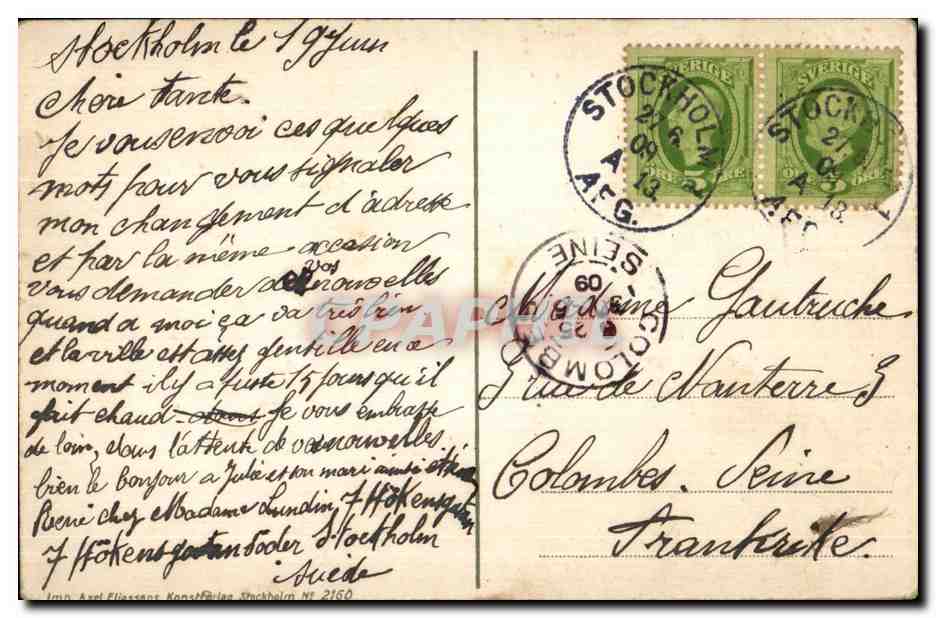 Stockholm le 19 Juin
Chère tante.
Je vous envoi ces quelques
mots pour vous signaler
mon changement d'adresse
et par la même occasion
vous demander de vos nouvelles
quand a moi ça va très bien
et la ville est assez gentille en ce
moment il y a juste 15 jours qu'il
fait chaud. Je vous embrasse
de loin, dans l'attente de vos nouvelles
bien le bonjour a Julie et son mari ainsi
René chez Madame Lundin, 7 Hökensgatan
7 Hökensgatan Söder Stockholm
Suède
Imp. Axel Eliassons Konstförlag Stockholm Nº 2160
SVERIGE
5 ÖRE
SVERIGE
5 ÖRE
STOCKHOLM
27 6
09
A 13
AFG.
STOCKH
27
09
A 13
COLOMBES
SEINE
25
09
Madame Gautruche
3 rue de Nanterre 3
Colombes. Seine
Frankrike.
CPARAMA